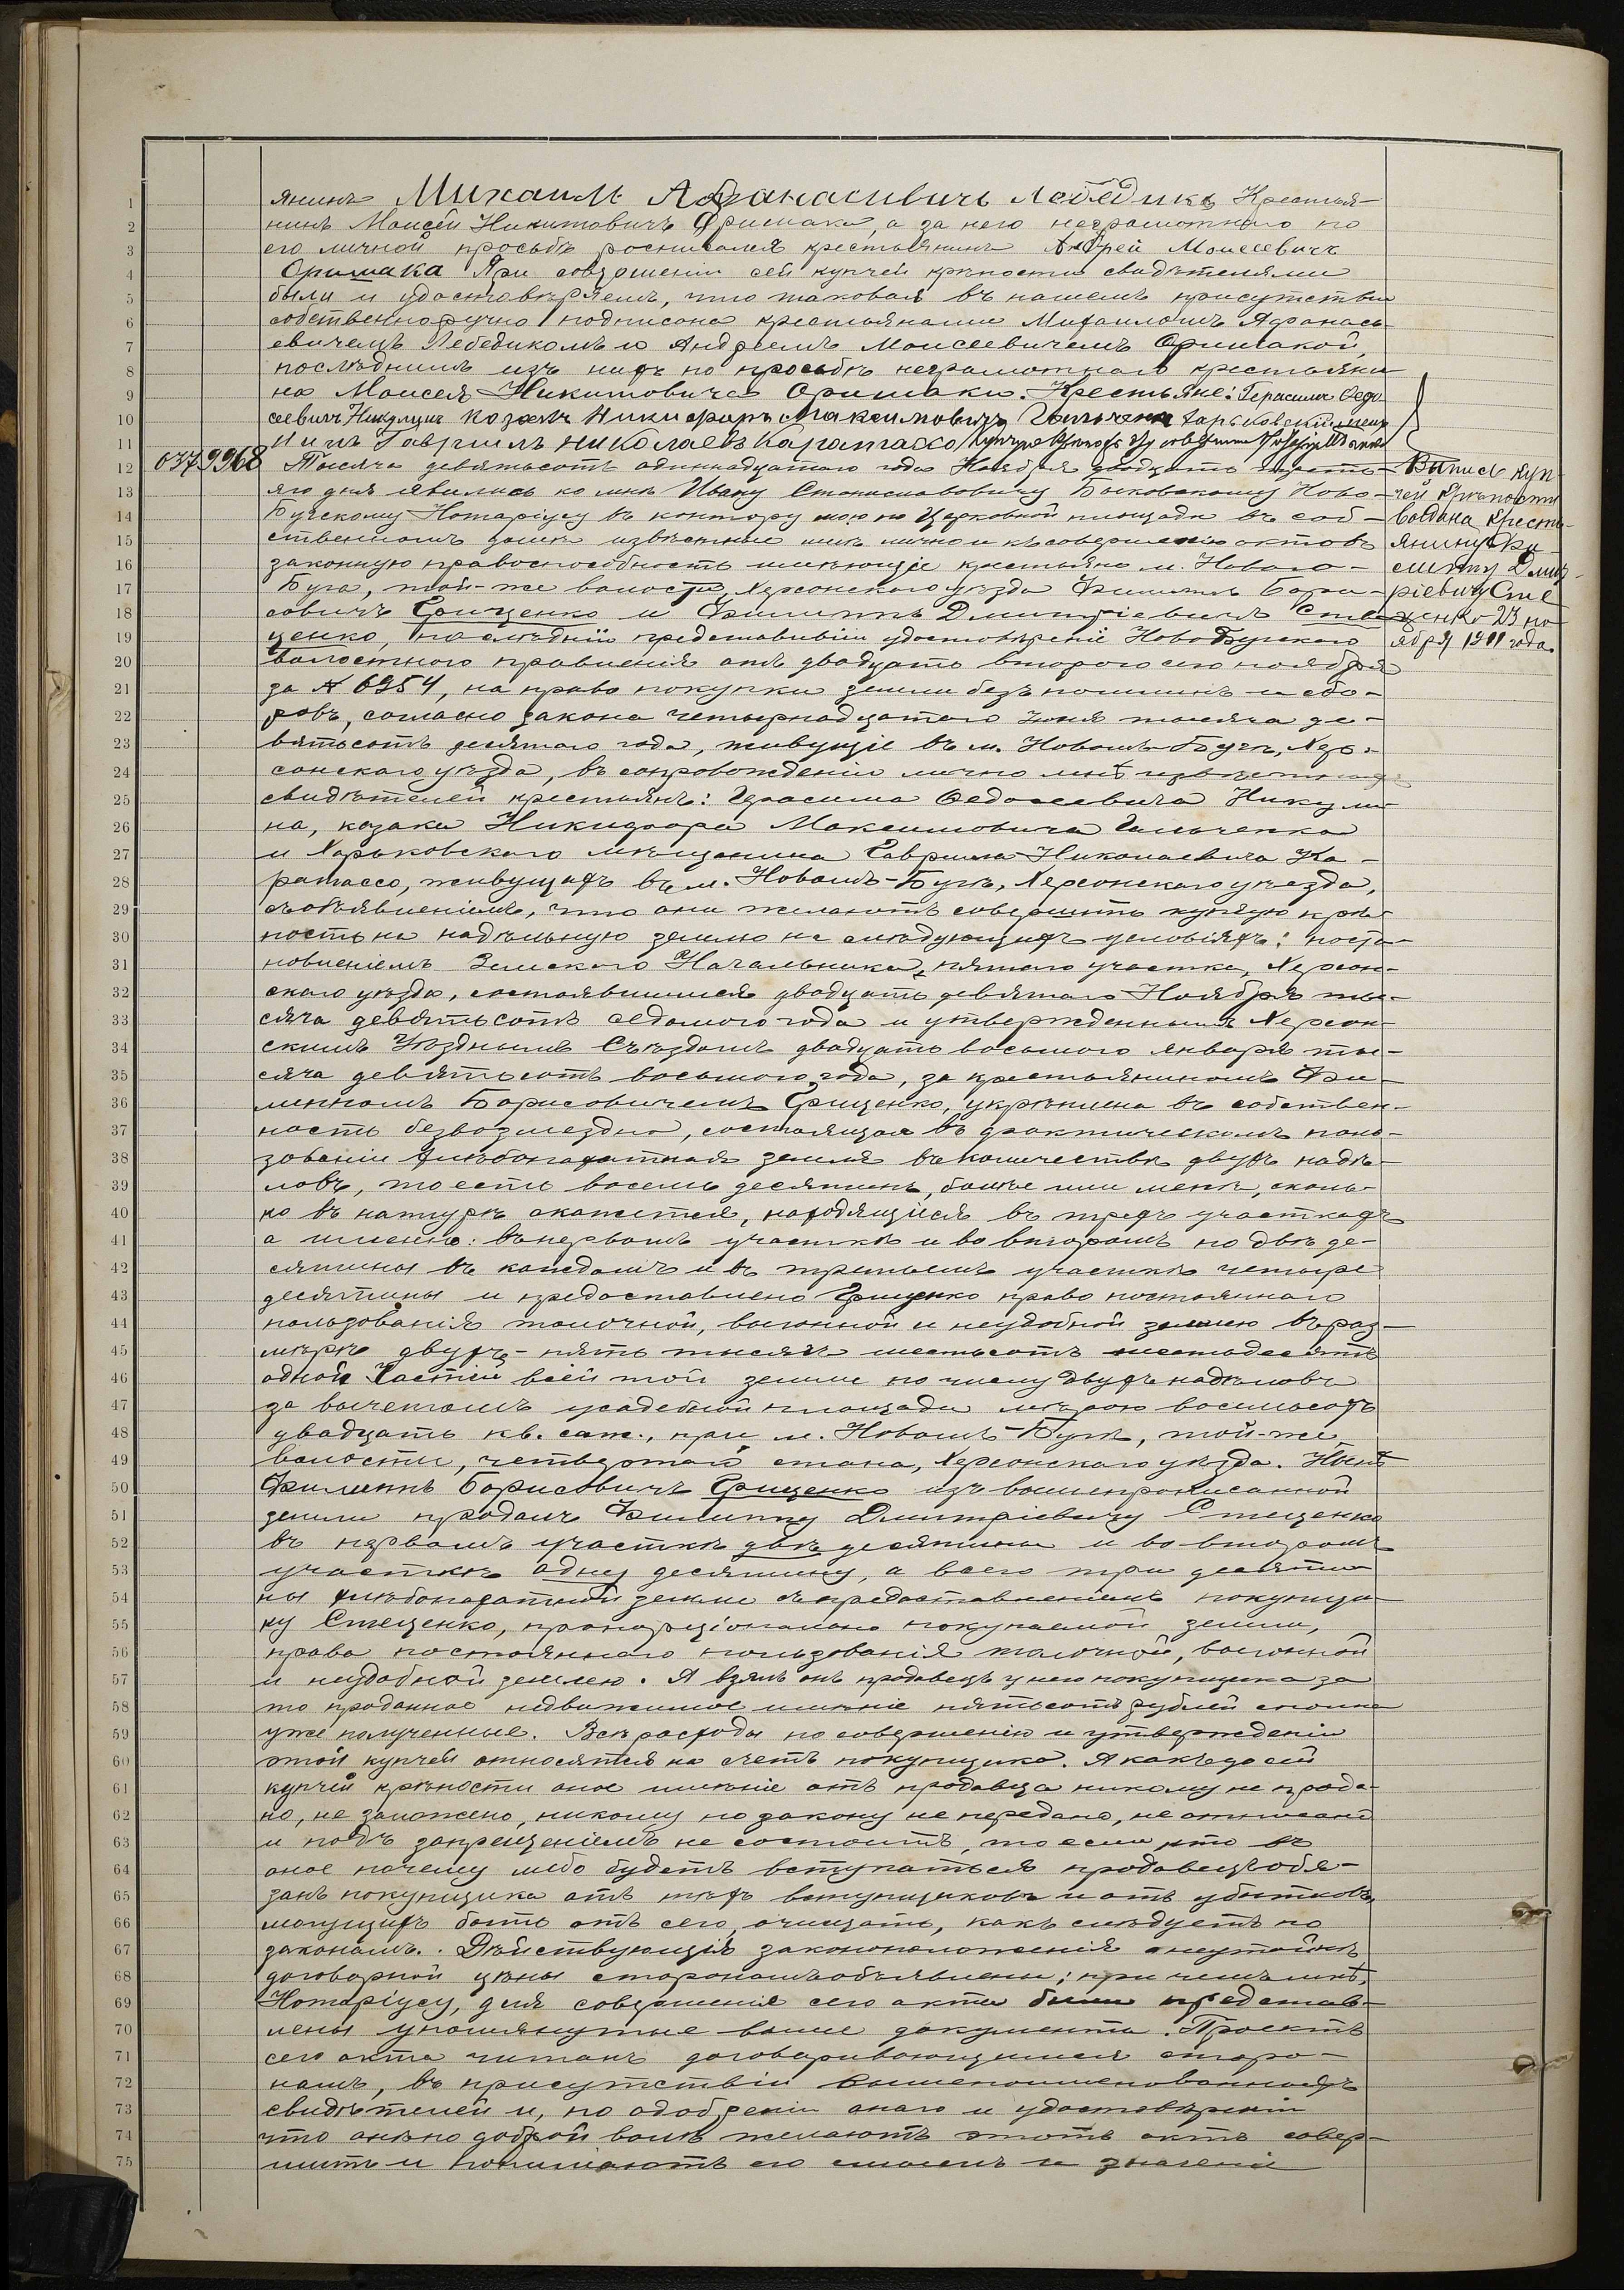 янинъ Михаилъ Афанасиевичъ Лебедикъ Крестья-
нинъ Моисей Никитовичъ Оришака, а за него неграмотнаго по
его личной просьбѣ росписался крестьянинъ Андрей Моисеевичъ
Оришака При совершеніи сей купчей крѣпости свидѣтелями
были и удостовѣряемъ, что таковая въ нашемъ присутствіи
собственноручно подписана крестьянами Михаиломъ Афанась-
евичемъ Лебедикомъ и Андреемъ Моисеевичемъ Оришакой,
послѣднимъ изъ нихъ по просьбѣ неграмотнаго крестьяни-
на Моисея Никитовича Оришаки. Крестьяне: Герасимъ Федо-
сеевичъ Никулинъ Козакъ Никифоръ Максимовичъ Гальченко Харьковскій мѣща
нинъ Гавріилъ Николаевъ Каратассо
037 9968 Тысяча девятьсотъ одиннадцатаго года Ноября двадцать третья-
яго дня явились ко мнѣ Ивану Станиславовичу Быковскому Ново-
Бугскому Нотаріусу въ контору мою на Церковной площади въ соб-
ственномъ домѣ извѣстные мнѣ лично и къ совершенію актовъ
законную правоспособность имѣющіе крестьяне м. Новаго-
Буга, той-же волости, Херсонскаго уѣзда Филиппъ Бори-
совичъ Грищенко и Филиппъ Дмитріевичъ Сте-
ценко, послѣдній представившій удостовѣреніе Новобугскаго
волостного правленія отъ двадцать второго сего ноября
за № 6954, на право покупки земли безъ пошлинъ и сбо-
ровъ, согласно закона четырнадцатаго Іюня тысяча де-
вятьсотъ десятаго года, живущіе въ м. Новомъ-Бугѣ, Хер-
сонскаго уѣзда, въ сопровожденіи лично мнѣ извѣстныхъ
свидѣтелей крестьянъ: Герасима Федосеевича Никули-
на, козака Никифора Максимовича Гальченка
и Харьковскаго мѣщанина Гавріила Николаевича Ка-
ратассо, живущихъ въ м. Новомъ-Бугѣ, Херсонскаго уѣзда,
съ объявленіемъ, что они желаютъ совершить купчую крѣ-
пость на надѣльную землю на слѣдующихъ условіяхъ: поста-
новленіемъ Земскаго Начальника, пятаго участка, Херсон-
скаго уѣзда, состоявшимся двадцать девятаго Ноября ты-
сяча девятьсотъ седьмого года и утвержденнымъ Херсон-
скимъ Уѣзднымъ Съѣздомъ двадцать восьмого января ты-
сяча девятьсотъ восьмого года, за крестьяниномъ Фи-
липпомъ Борисовичемъ Грищенко, укрѣплена въ собствен-
ность безвозмездно, состоящая въ фактическомъ поль-
зованіи хлѣбопахатная земля въ количествѣ двухъ надѣ-
ловъ, то есть восемь десятинъ, болѣе или менѣе, сколь-
ко въ натурѣ окажется, находящіеся въ трехъ участкахъ
а именно: въ первомъ участкѣ и во второмъ по двѣ де-
сятины въ каждомъ и въ третьемъ участкѣ четыре
десятины и предоставлено Грищенко право постояннаго
пользованія толочной, выгонной и неудобной землею въ раз-
мѣрѣ двухъ-пять тысячъ шестьсотъ шестьдесятъ
одной частей всей той земли по числу двухъ надѣловъ
за вычетомъ усадебной площади мѣрою восемьсотъ
двадцать кв. саж., при м. Новомъ-Бугѣ, той-же
волости, четвертаго стана, Херсонскаго уѣзда. Нынѣ
Филиппъ Борисовичъ Грищенко изъ вышепрописанной
земли продалъ Филиппу Дмитріевичу Стеценко
въ первомъ участкѣ двѣ десятины и во второмъ
участкѣ одну десятину, а всего три десяти-
ны хлѣбопахатной земли съ предоставленіемъ покупщи-
ку Стеценко, пропорціонально покупаемой земли,
права постояннаго пользованія толочной, выгонной
и неудобной землею. А взялъ онъ продавецъ у него покупщика за
то проданное недвижимое имѣніе пятьсотъ рублей сполна
уже полученные. Всѣ расходы по совершенію и утвержденію
этой купчей относятся на счетъ покупщика. А какъ до сей
купчей крѣпости оное имѣніе отъ продавца никому не прода-
но, не заложено, никому по закону не передано, не отписано
и подъ запрещеніемъ не состоитъ, то если кто въ
оное почему либо будетъ вступаться продавецъ обя-
занъ покупщика отъ тѣхъ вступщиковъ и отъ убытковъ,
могущихъ быть отъ сего, очищать, какъ слѣдуетъ по
законамъ. Дѣйствующія законоположенія о неутайкѣ
договорной цѣны сторонамъ объявлены; при чемъ мнѣ,
Нотаріусу, для совершенія сего акта были представ-
лены упомянутые выше документы. Проектъ
сего акта читанъ договаривающимся сторо-
намъ, въ присутствіи вышепоименованныхъ
свидѣтелей и, по одобреніи онаго и удостовѣреніи
что они по доброй волѣ желаютъ этотъ актъ совер-
шить и понимаютъ его смыслъ и значеніе
Выпись куп-
чей крѣпости
выдана кресть-
янину Фи-
липпу Дмит-
ріевичу Сте
ценко 23 но-
ября 1911 года.
1
2
3
4
5
6
7
8
9
10
11
12
13
14
15
16
17
18
19
20
21
22
23
24
25
26
27
28
29
30
31
32
33
34
35
36
37
38
39
40
41
42
43
44
45
46
47
48
49
50
51
52
53
54
55
56
57
58
59
60
61
62
63
64
65
66
67
68
69
70
71
72
73
74
75